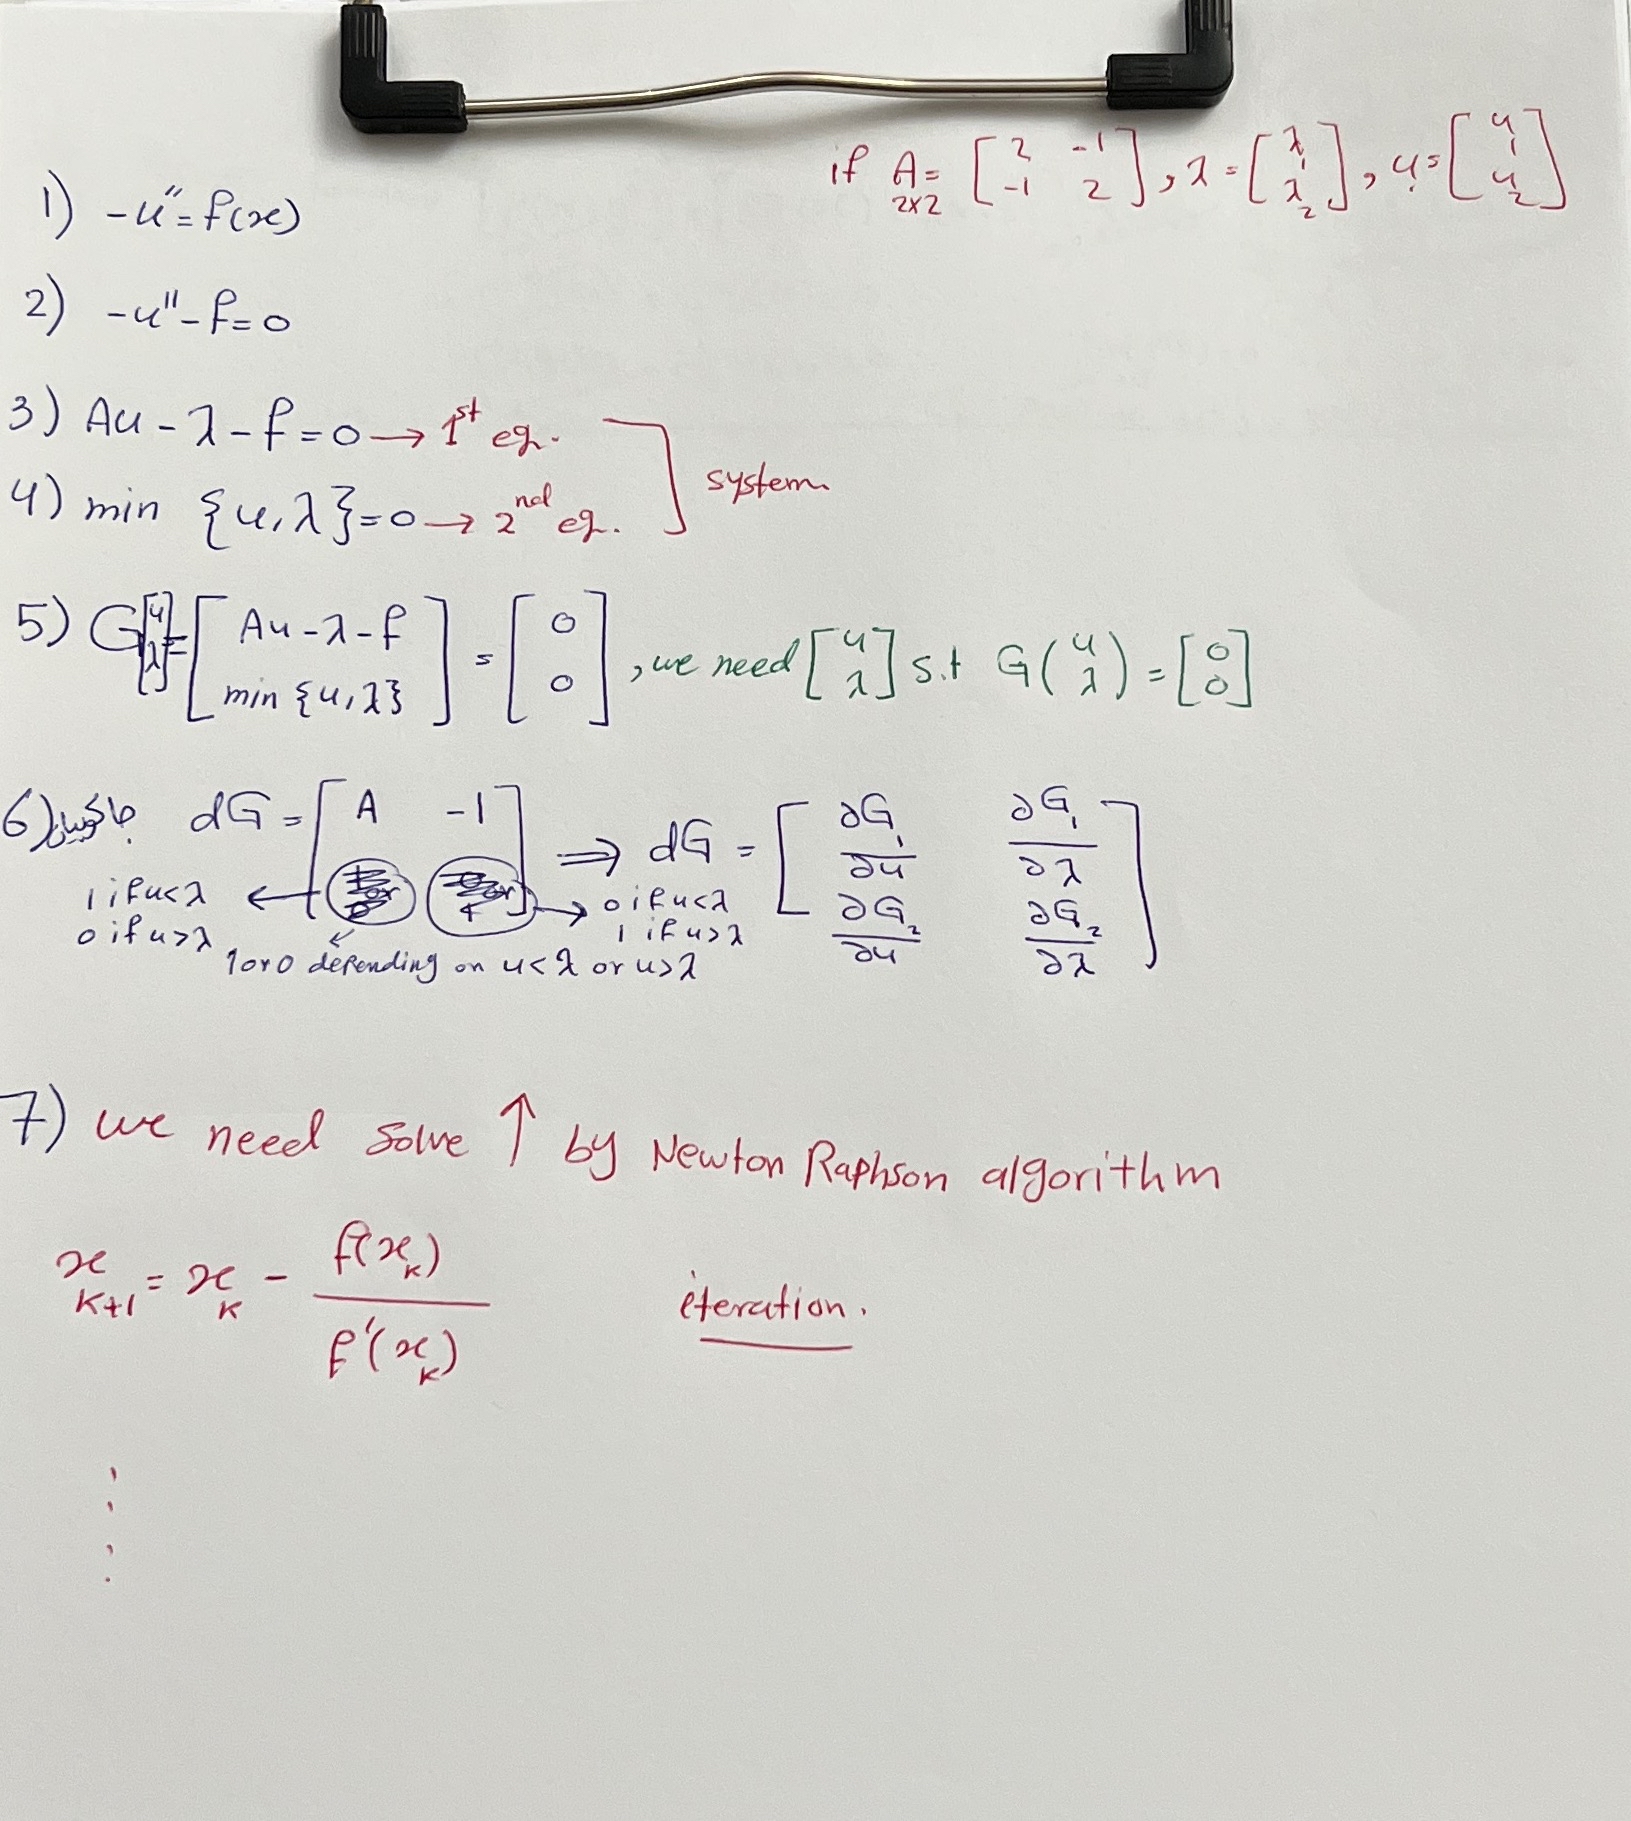 if A 2x2 = [ 2 -1 -1 2 ], λ = [ λ1 λ2 ], u = [ u1 u2 ]
1) -u″ = f(x)
2) -u″ - f = 0
3) Au - λ - f = 0 → 1st eq.
system.
4) min {u, λ} = 0 → 2nd eq.
5) G[ u λ ] = [ Au - λ - f min {u, λ} ] = [ 0 0 ], we need [ u λ ] s.t G( u λ ) = [ 0 0 ]
6) dG = [ A -1 ] ⟹ dG = [ ∂G1/∂u ∂G1/∂λ ∂G2/∂u ∂G2/∂λ ]
1 if u<λ ← → 0 if u<λ
0 if u>λ 1 if u>λ
1 or 0 depending on u<λ or u>λ
7) we need solve ↑ by Newton Raphson algorithm
x k+1 = x k - f(x k) / f′(x k) iteration.